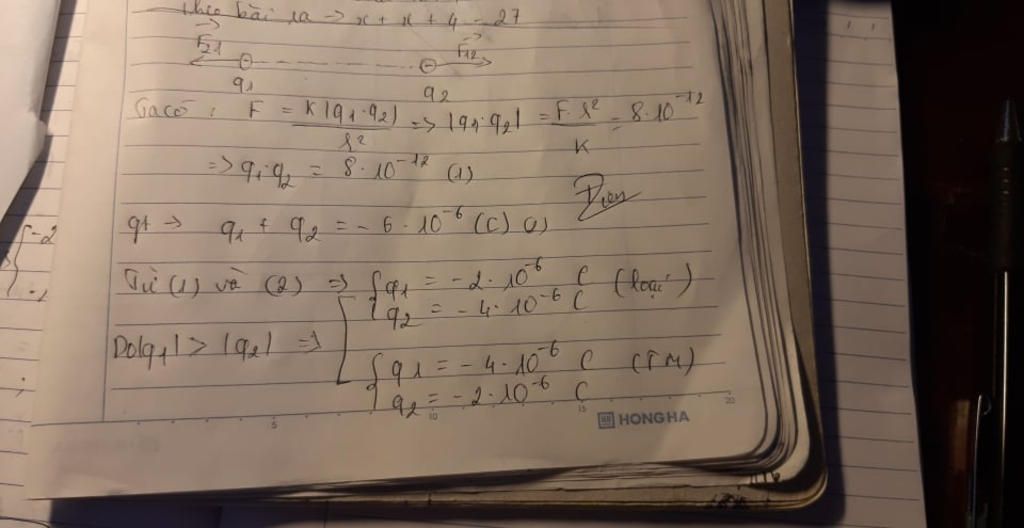 Theo bài ra => x + x + 4 = 27
F21 F12
q1 q2
Ta có : F = K|q1·q2| / r² => |q1·q2| = F·r² / K = 8·10⁻¹²
=> q1·q2 = 8·10⁻¹² (1)
gt → q1 + q2 = -6·10⁻⁶ (C) (2)
Từ (1) và (2) => { q1 = -2·10⁻⁶ C (loại)
q2 = -4·10⁻⁶ C
Do|q1| > |q2| =>
{ q1 = -4·10⁻⁶ C (TM)
q2 = -2·10⁻⁶ C
5 10 15 20
HONG HA